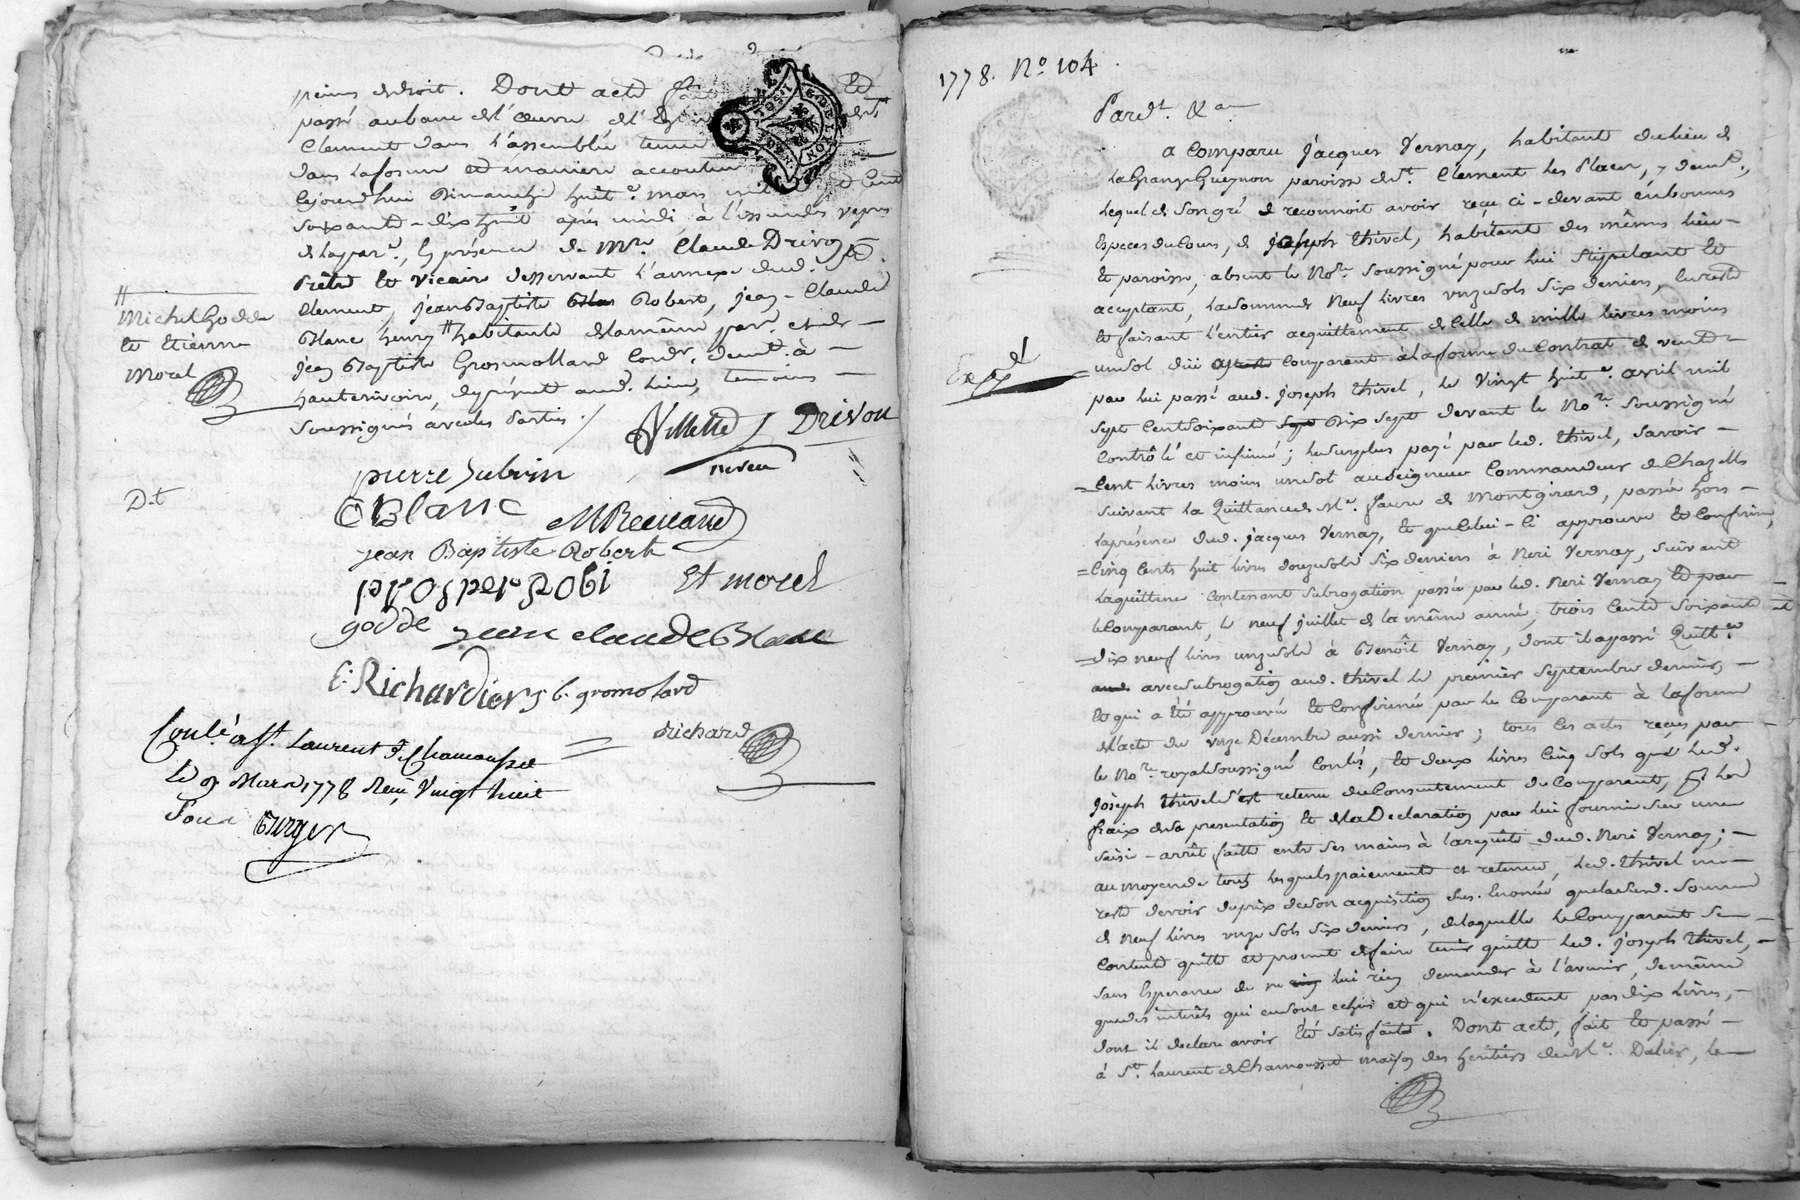 peines de droit. Dont acte
passé au banc de l'œuvre de l'Eg
Clement dans l'assemblée tenue
dans la forme et maniere accoutu
Cejourdhui Dimanche huit.e mars mil et Cent
soixante-dixhuit après midi à l'issue des vepres
de la par.e, En présence de M.re Claude Drivon
Prêtre et vicaire desservant l'annexe dud. St.
Clement, jean Baptiste Robert, jean-Claude
Blanc henry # habitants de la même par.e et de
jean Baptiste Grosmolland Cord.r demt. à
hauterivoire, de présent aud. Lieu, temoins
soussignés avec les Parties ./
#
Michel Godde
et Etienne
Morel
D.t
Villette
neveu
Drivon
pierre Subrin
CBlanc
MRecicand
jean Baptiste Robert
prosper Robi
Et morel
godde
jean claude Blanc
E: Richardier
b. gromolard
richard
Conl.é à St. Laurent de Chamousset
Le 9 Mars 1778 Reçu Vingt huit
Sous
Burger
1778. No. 104
Pardt. &a
Exp.d
A Comparu Jacques Vernay, habitant du lieu de
La Grange Gueynon paroisse de St. Clement Les Places, y demt.,
Lequel de son gré a reconnoit avoir reçu ci-devant en bonnes
Especes du Cours, de Joseph Thivel, habitant des mêmes Lieu
et paroisse, absent le No.re soussigné pour lui stipulant et
acceptant, la somme de Neuf Livres onze sols six deniers, en reste
et faisant l'entier acquittement de Celle de mille Livres moins
un sol düe Comparant à la forme du Contrat de vente
par lui passé aud. Joseph Thivel, le vingt huit.e avril mil
sept Cent soixante Dix sept devant le No.re soussigné
Contrôlé et insinué; le surplus payé par led. Thivel, savoir
Cent Livres moins un sol au Seigneur Commandeur de Chazelles
suivant la Quittance de M.e faure de Montgirard, passée hors
la présence dud. jacques Vernay, et que celui-ci approuve et Confirme,
Cinq Cents huit Livres douze sols six deniers à Neri Vernay, suivant
la quittance Contenant subrogation passée par led. Neri Vernay et par
le Comparant, le neuf juillet de la même année, trois Cents soixante et
dix neuf livres onze sols à Benoît Vernay, dont il a passé Quitt.ce
avec subrogation aud. Thivel le premier septembre dernier,
et qui a été approuvée et Confirmée par le Comparant à la forme
de l'acte du onze Décembre aussi dernier; tous les actes reçus par
le No.re royal soussigné Conlé., et deux livres Cinq sols que led.
joseph Thivel s'est retenu du Consentement du Comparant, pour les
fraix de sa presentation et de la Declaration par lui fournie sur une
saisie-arrêt faitte entre ses mains à la requête dud. Neri Vernay;
au moyen de tous lesquels paiements et retenue, led. Thivel ne
reste devoir du prix de son acquisition sus. Enoncée que lad. somme
de Neuf Livres onze sols six deniers, de laquelle le Comparant se
Contente quitte et promet de faire tenir quitte led. joseph Thivel,
sans Esperance de ne lui rien demander à l'avenir, de même
que des intérêts qui en sont echus et qui n'excedent pas dix Livres,
dont il declare avoir été satisfait. Dont acte, fait et passé
à St. Laurent de Chamousset maison des heritiers de M.e Dalier, le